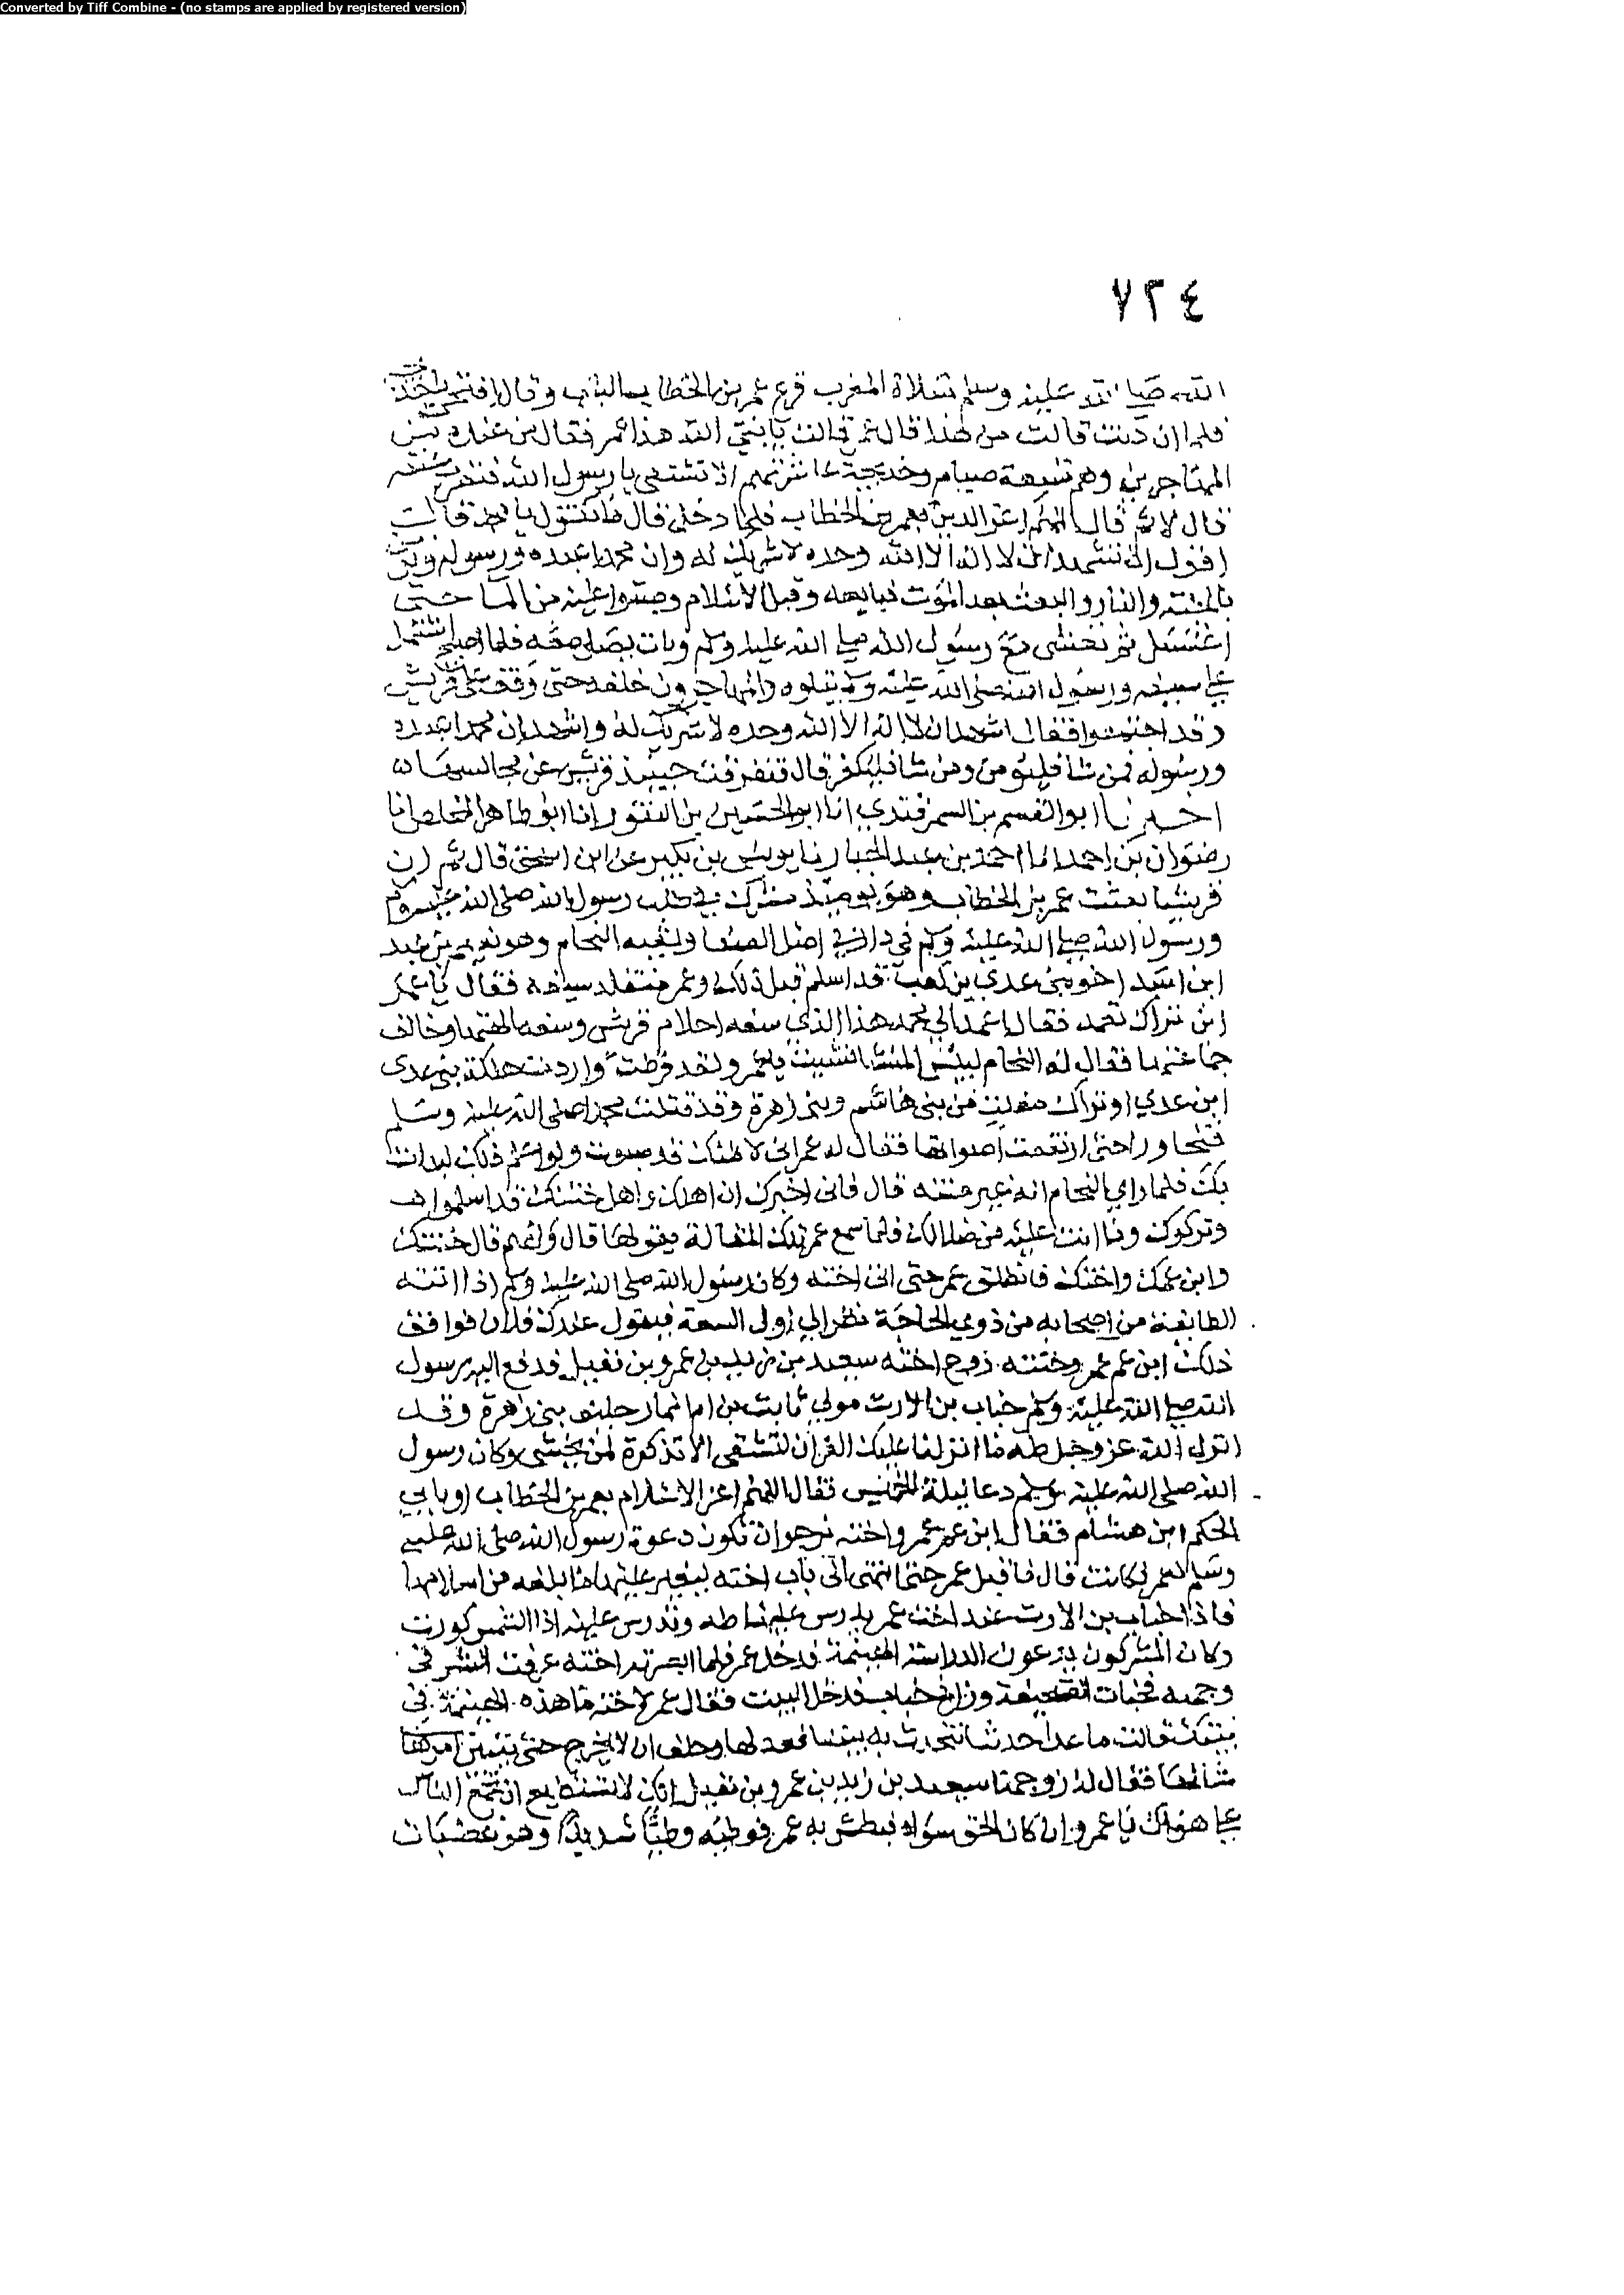 Converted by Tiff Combine - (no stamps are applied by registered version)
٧٢٤
الله صلى الله عليه وسلم صلاة المغرب قرع عمر بن الخطاب الباب وقال افتحي يا خديجة
فلما ان دنت قالت من هذا قال عمر قالت يا نبي الله هذا عمر فقال من عنده من
المهاجرين وهم تسعة صيام وخديجة عاشرتهم الا تشتفي يا رسول الله فنضرب عنقه
قال لا ثم قال اللهم اعز الدين بعمر بن الخطاب فلما دخل قال ما تقول يا محمد قال
اقول ان تشهد ان لا اله الا الله وحده لا شريك له وان محمدا عبده ورسوله وتؤمن
بالجنة والنار والبعث بعد الموت فبايعه وقبل الاسلام وصبوا عليه من الما حتى
اغتسل ثم تعشى مع رسول الله صلى الله عليه وسلم وبات يصلي معه فلما اصبح اشتمل
على سيفه ورسول الله صلى الله عليه وسلم يتلوه والمهاجرون خلفه حتى وقف على قريش
وقد اجتمعوا فقال اشهد ان لا اله الا الله وحده لا شريك له واشهد ان محمدا عبده
ورسوله فمن شا فليؤمن ومن شا فليكفر قال فتفرقت حينئذ قريش عن مجالسها
اخبرنا ابو القسم بن السمرقندي انا ابو الحسين بن النقور انا ابو طاهر المخلص انا
رضوان بن احمد انا احمد بن عبد الجبار نا يونس بن بكير عن ابن اسحق قال ثم ان
قريشا بعثت عمر بن الخطاب وهو يومئذ مشرك في طلب رسول الله صلى الله عليه وسلم
ورسول الله صلى الله عليه وسلم في دار في اصل الصفا ولقيه النحام وهو نعيم بن عبد
ابن اسيد اخو بني عدي بن كعب قد اسلم قبل ذلك وعمر متقلد سيفه فقال يا عمر
اين تراك تعمد فقال اعمد الى محمد هذا الذي سفه احلام قريش وسفه الهتها وخالف
جماعتها فقال له النحام لبئس الممشا مشيت يا عمر ولقد فرطت واردت هلكة بني عدي
ابن عدي او تراك منفلت من بني هاشم وبني زهرة وقد قتلت محمدا صلى الله عليه وسلم
فتحاورا حتى ارتفعت اصواتهما فقال له عمر اني لاظنك قد صبوت ولو اعلم ذلك لبدات
بك فلما راى النحام انه غير منته قال فاني اخبرك ان اهلك واهل ختنك قد اسلموا
وتركوك وما انت عليه من ضلالك فلما سمع عمر تلك المقالة يقولها قال وايهم قال ختنك
وابن عمك واختك فانطلق عمر حتى اتى اخته وكان رسول الله صلى الله عليه وسلم اذا اتته
الطايفة من اصحابه من ذوي الحاجة نظر الى اولي السعة فيقول عندك فلان فوافق
ذلك ابن عم عمر وختنه زوج اخته سعيد بن زيد بن عمرو بن نفيل فدفع اليه رسول
الله صلى الله عليه وسلم خباب بن الارت مولى ثابت بن ام انمار حليف بني زهرة وقد
انزل الله عز وجل طه ما انزلنا عليك القران لتشقى الا تذكرة لمن يخشى وكان رسول
الله صلى الله عليه وسلم دعا ليلة الخميس فقال اللهم اعز الاسلام بعمر بن الخطاب او بابي
الحكم ابن هشام فقال ابن عم عمر واخته نرجو ان تكون دعوة رسول الله صلى الله عليه
وسلم لعمر فكانت قال فاقبل عمر حتى انتهى الى باب اخته ليغير عليها ما بلغه من اسلامها
فاذا خباب بن الارت عند اخت عمر يدرس عليها طه وتدرس عليه اذا الشمس كورت
وكان المشركون يدعون الدراسة الهينمة فدخل عمر فلما ابصرته اخته عرفت الشر في
وجهه فخبات الصحيفة وزاغ خباب فدخل البيت فقال عمر لاخته ما هذه الهينمة في
بيتك قالت ما عدا حديثا نتحدث به بيننا فعد لها وحلف ان لا يخرج حتى يتبين امرها
شانها فقال له زوجها سعيد بن زيد بن عمرو بن نفيل انك لا تستطيع ان تجمع الناس
على هواك يا عمر وان كان الحق سواه فبطش به عمر فوطئه وطئا شديدا وهو غضبان